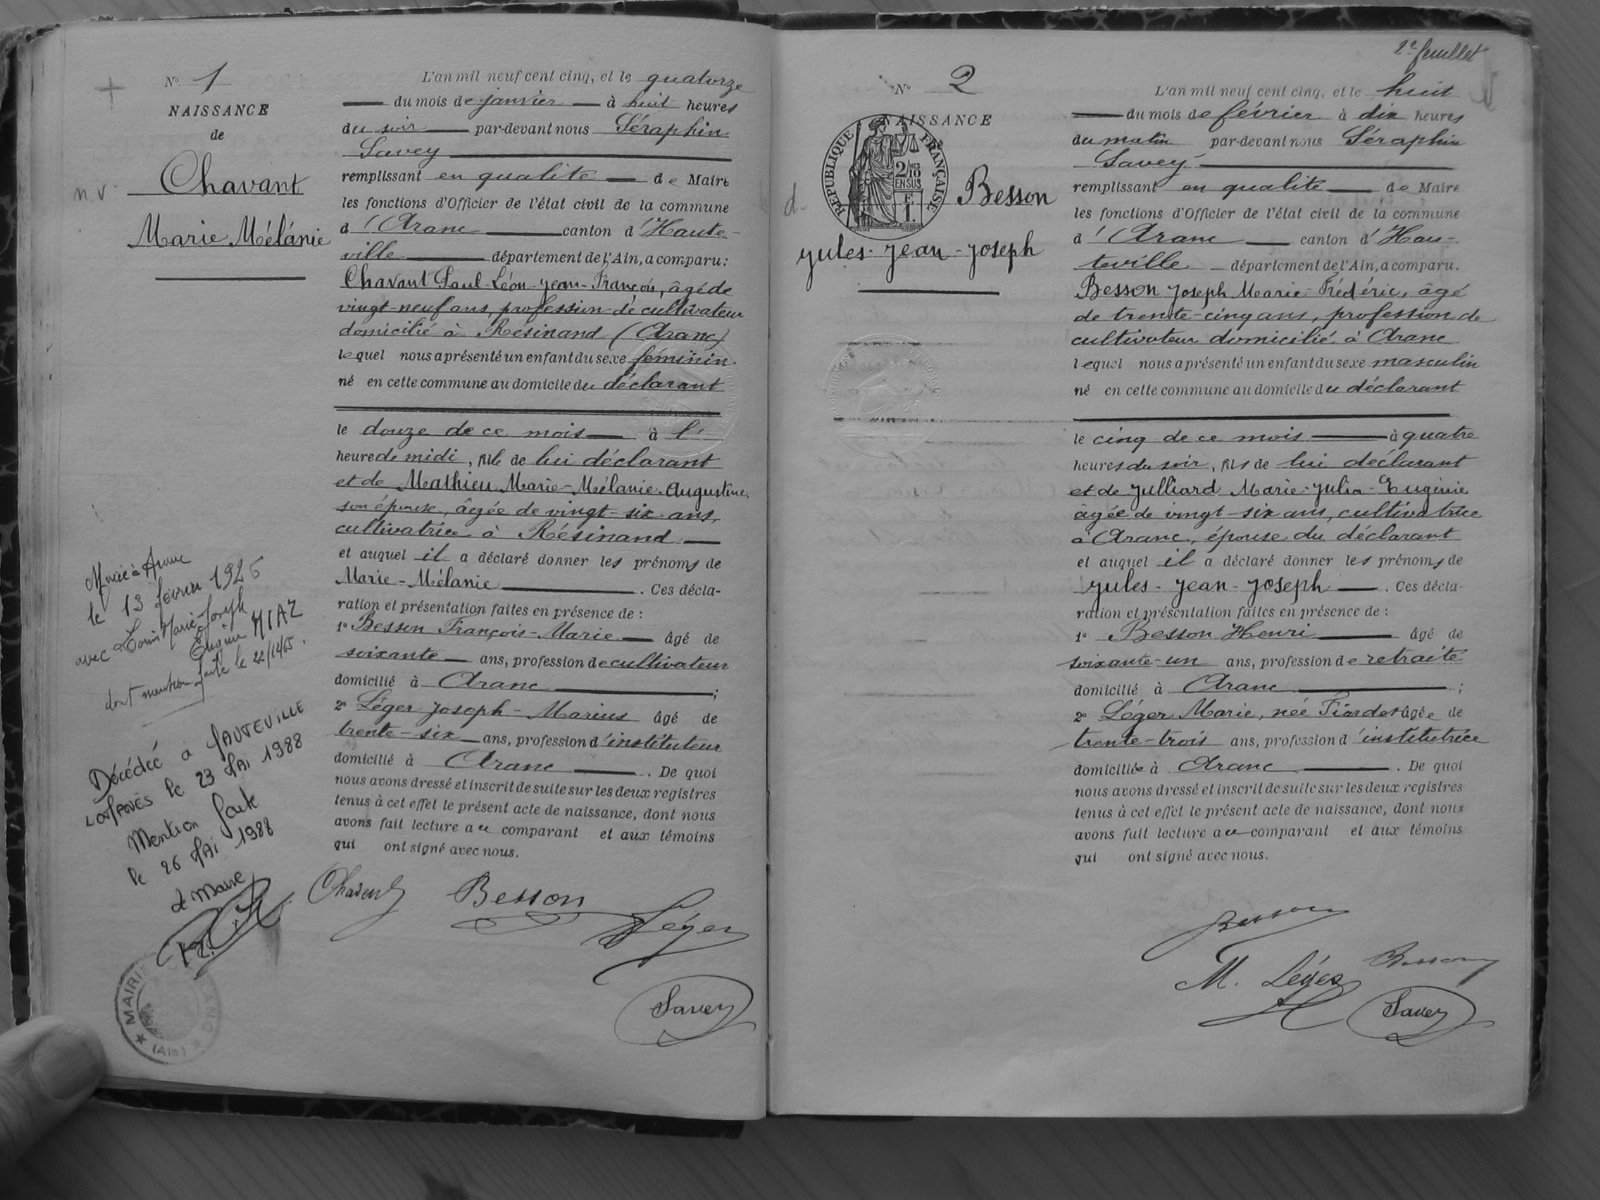 N° 1
NAISSANCE
de
Chavant
Marie Mélanie
n v.
L'an mil neuf cent cinq, et le quatorze
du mois de janvier à huit heures
du soir par-devant nous Séraphin
Savey
remplissant en qualité de Maire
les fonctions d'Officier de l'état civil de la commune
d'Aranc canton d'Haute-
ville département de l'Ain, a comparu:
Chavant Paul-Léon-Jean-François, âgé de
vingt-neuf ans, profession de cultivateur
domicilié à Résinand (Aranc)
lequel nous a présenté un enfant du sexe féminin.
né en cette commune au domicile du déclarant
le douze de ce mois à l'
heure de midi, fille de lui déclarant
et de Mathieu Marie-Mélanie-Augustine,
son épouse, âgée de vingt-six ans,
cultivatrice à Résinand
et auquel il a déclaré donner les prénoms de
Marie-Mélanie. Ces décla-
ration et présentation faites en présence de :
1° Besson François-Marie âgé de
soixante ans, profession de cultivateur
domicilié à Aranc ;
2° Léger Joseph-Marius âgé de
trente-six ans, profession d'instituteur
domicilié à Aranc. De quoi
nous avons dressé et inscrit de suite sur les deux registres
tenus à cet effet le présent acte de naissance, dont nous
avons fait lecture au comparant et aux témoins
qui ont signé avec nous.
Mariée à Aranc
le 13 février 1926
avec Louis Marie Joseph
Eugène
dont mention faite le
Décédée à HAUTEVILLE
LOMPNES le 23 MAI 1988
Mention faite
le 26 MAI 1988
le Maire
Chavant Besson
Léger
Savey
MAIRIE
(AIN)
2e feuillet
N° 2
NAISSANCE
RÉPUBLIQUE FRANÇAISE
2/10 EN SUS
F
1.
d.
Besson
Jules-Jean-Joseph
L'an mil neuf cent cinq, et le huit
du mois de février à dix heures
du matin par-devant nous Séraphin
Savey
remplissant en qualité de Maire
les fonctions d'Officier de l'état civil de la commune
d'Aranc canton d'Hau-
teville département de l'Ain, a comparu.
Besson Joseph Marie-Frédéric, âgé
de trente-cinq ans, profession de
cultivateur domicilié à Aranc
lequel nous a présenté un enfant du sexe masculin
né en cette commune au domicile du déclarant
le cinq de ce mois à quatre
heures du soir, fils de lui déclarant
et de Julliard Marie-Julia-Eugénie
âgée de vingt-six ans, cultivatrice
à Aranc, épouse du déclarant
et auquel il a déclaré donner les prénoms de
Jules-Jean-Joseph. Ces décla-
ration et présentation faites en présence de :
1° Besson Henri âgé de
soixante-un ans, profession de retraité
domicilié à Aranc ;
2° Léger Marie, née âgée de
trente-trois ans, profession d'institutrice
domiciliée à Aranc. De quoi
nous avons dressé et inscrit de suite sur les deux registres
tenus à cet effet le présent acte de naissance, dont nous
avons fait lecture au comparant et aux témoins
qui ont signé avec nous.
Besson
M. Léger Besson
Savey